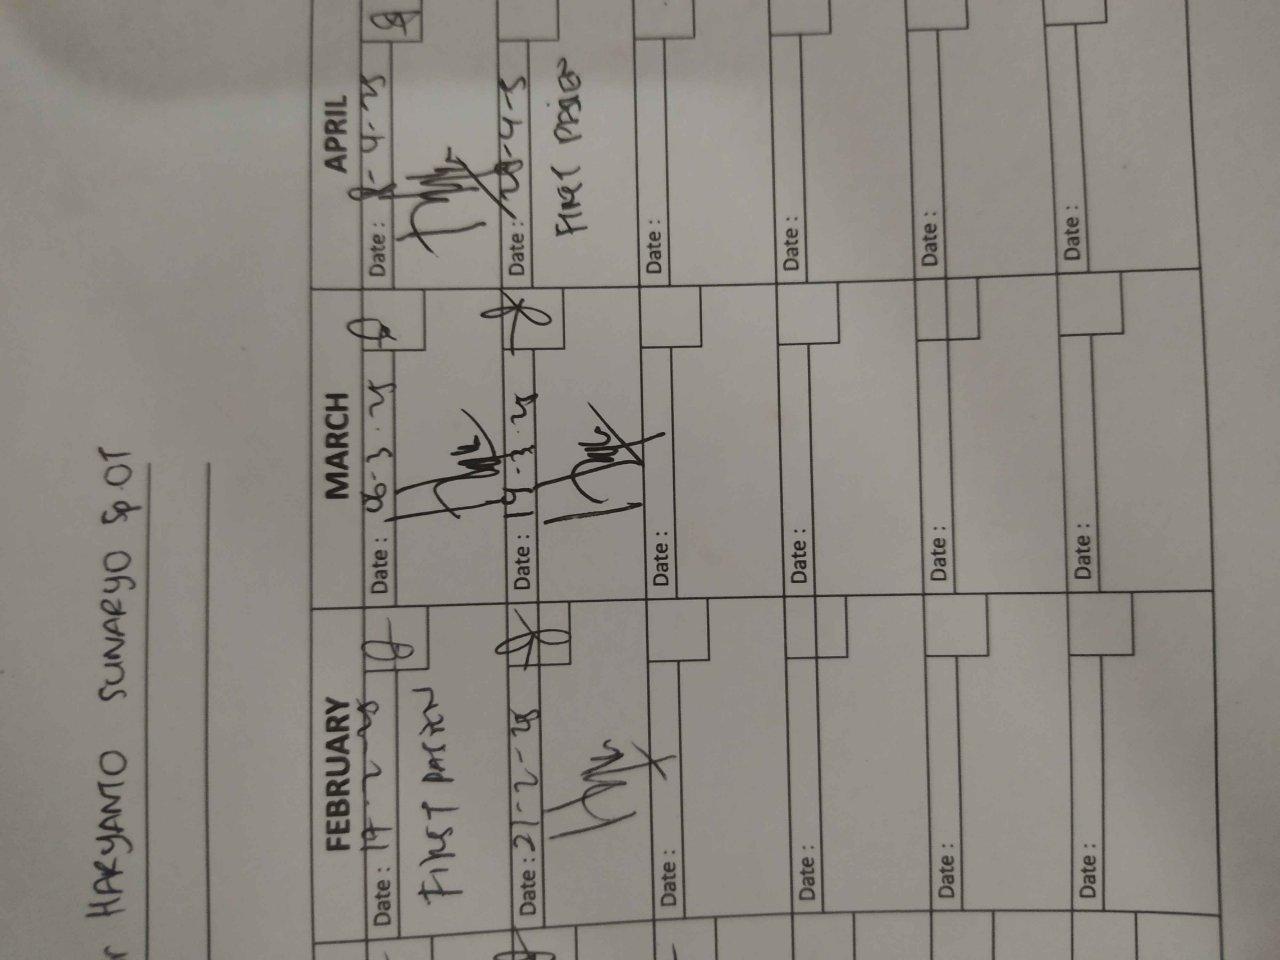 r HARYANTO SUNARYO SpOT
FEBRUARY MARCH APRIL
Date : 17-2-25 Date : 06-3-25 Date : 8-4-25
FIRST PASIEN
Date : 21-2-25 Date : 19-3-25 Date : 28-4-5
FIRST PASIEN
Date : Date : Date :
Date : Date : Date :
Date : Date : Date :
Date : Date : Date :